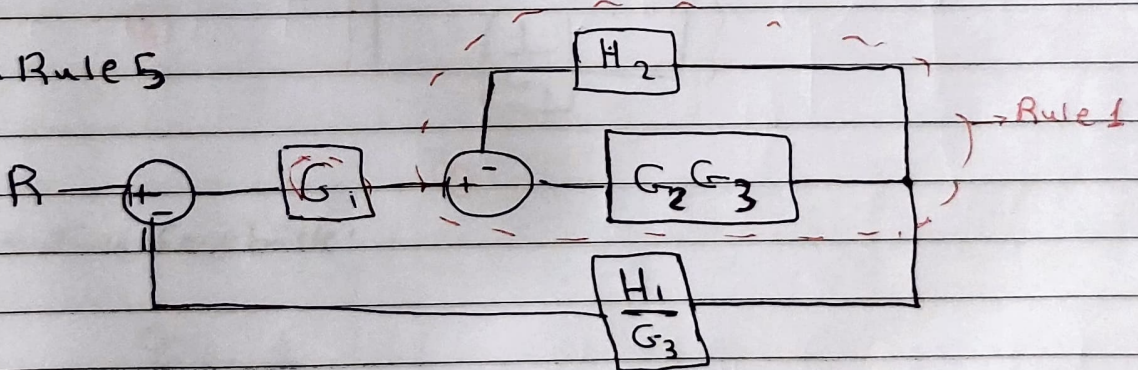 Rule 5
H2
→ Rule 1
R + - G1 + - G2 G3
H1
G3